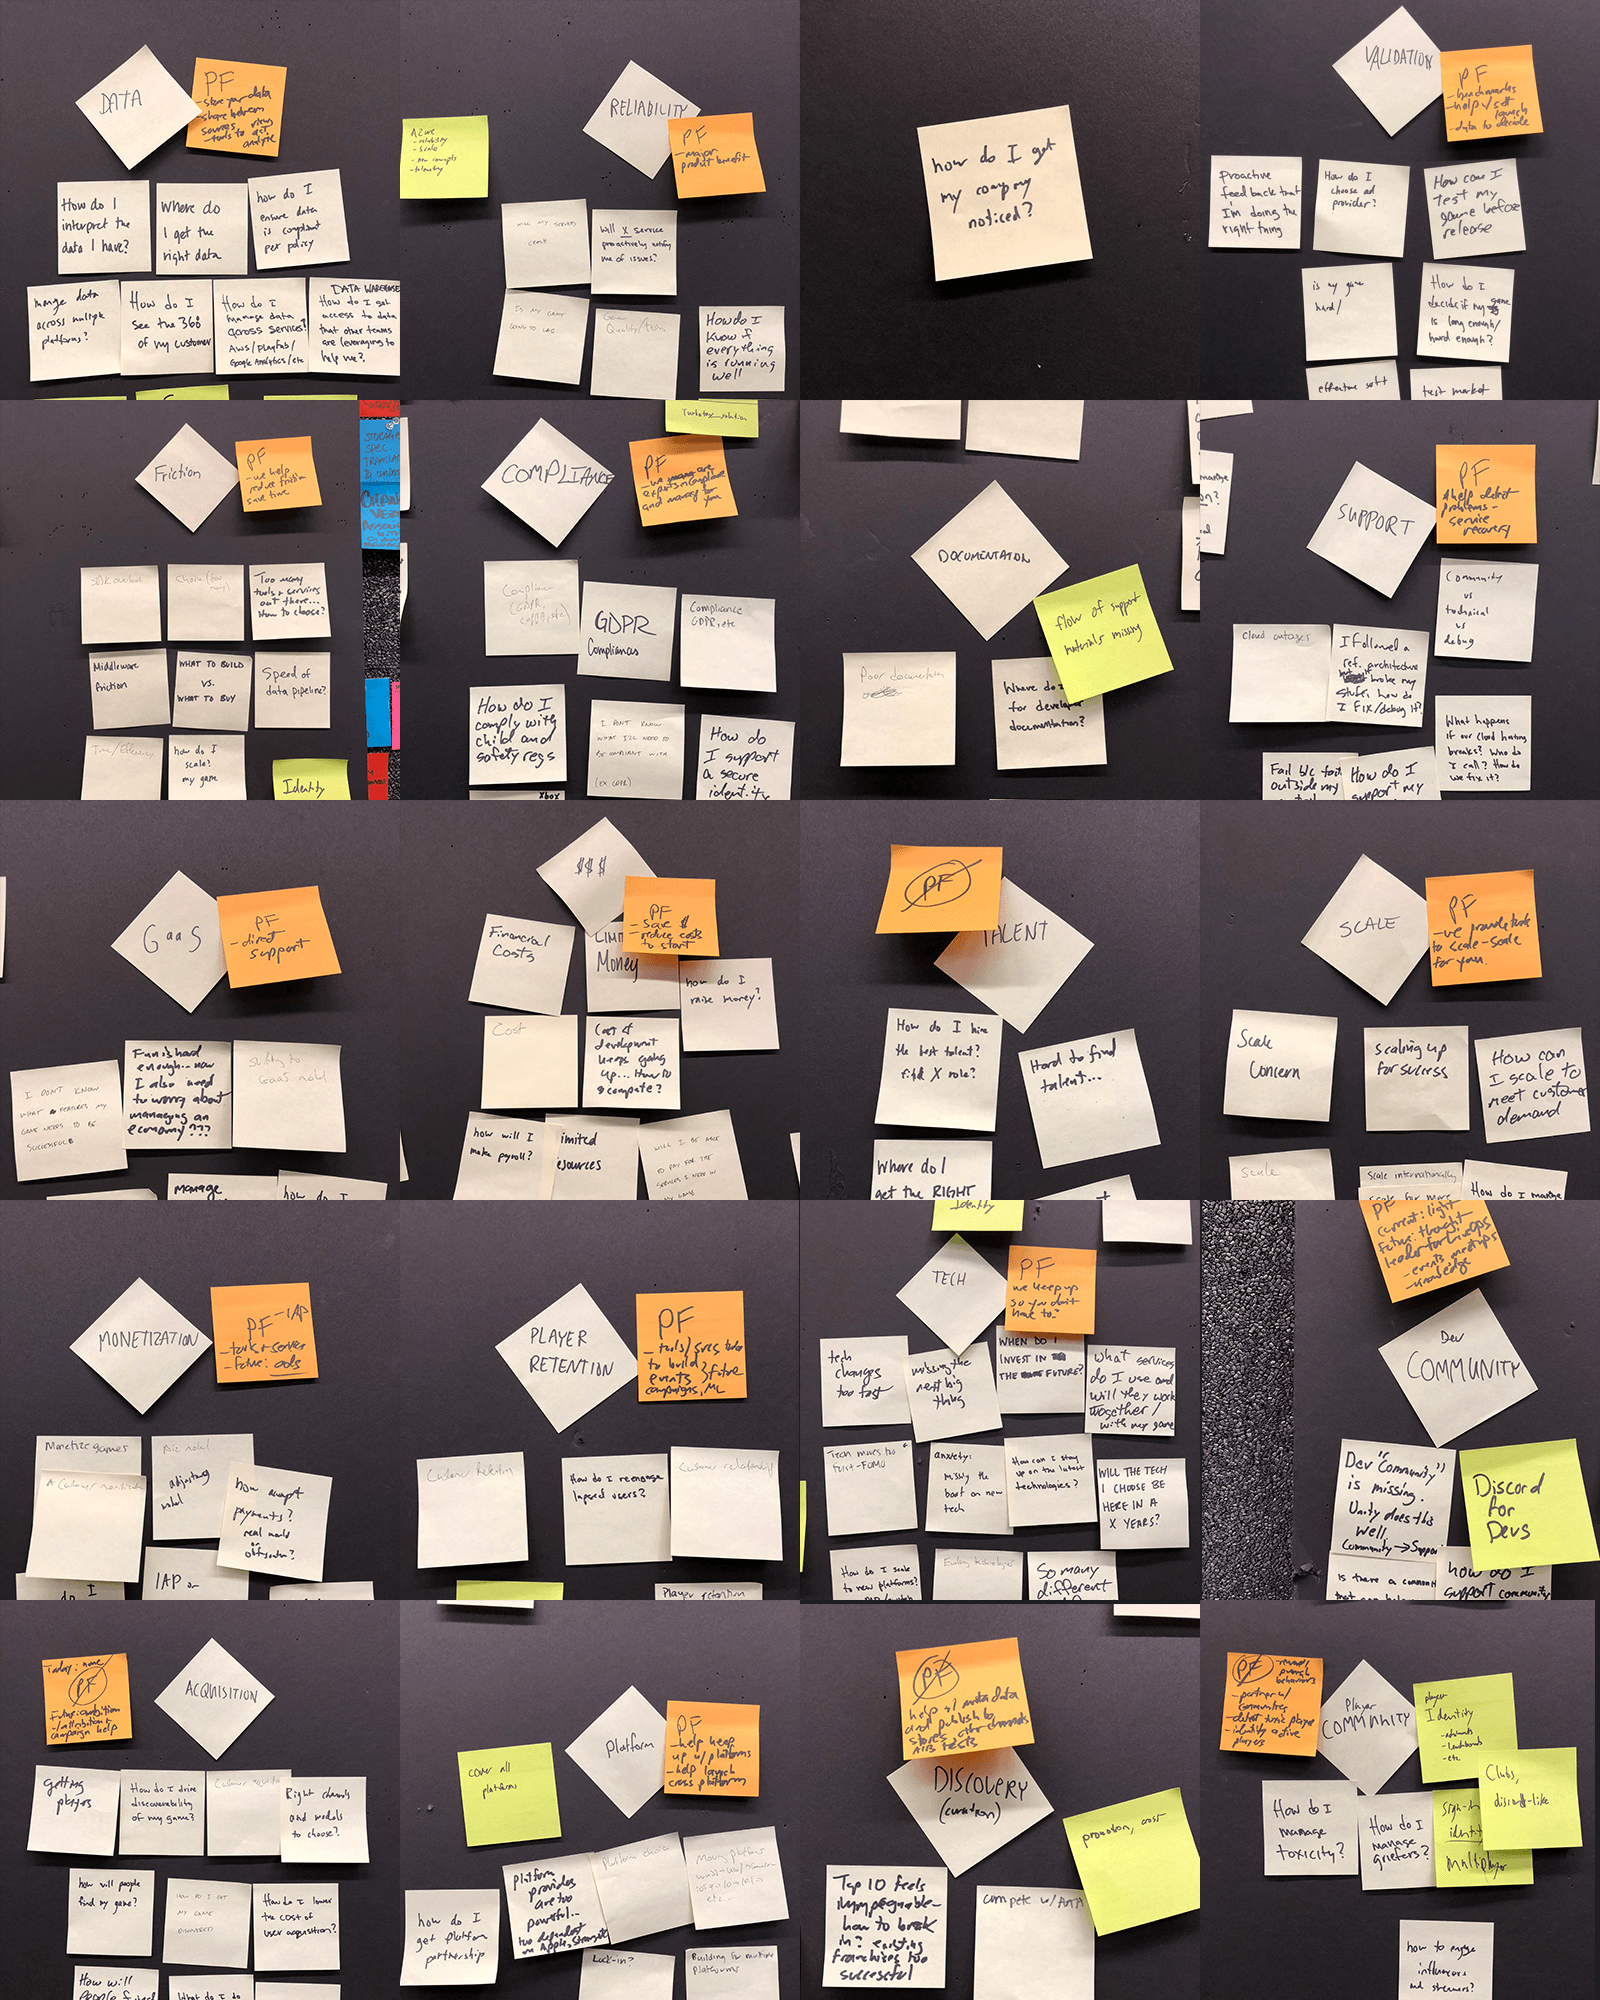 DATA
PF
- store your data
share between
sources, views
- tools to act,
analyze
How do I
interpret the
data I have?
Where do
I get the
right data
how do I
ensure data
is compliant
per policy
manage data
across multiple
platforms?
How do I
see the 360
of my customer
How do I
manage data
across services?
AWS/Playfab/
Google Analytics/etc
DATA WAREHOUSE
How do I get
access to data
that other teams
are leveraging to
help me?
RELIABILITY
PF
- major
product benefit
Azure
- reliability
- scale
- telemetry
WILL MY SERVERS
CRASH
Will X service
proactively notify
me of issues?
IS MY GAME
GOING TO LAG
How do I
know if
everything
is running
well
how do I get
my company
noticed?
VALIDATION
PF
- benchmarks
- help w/ soft
launch
- data to decide
Proactive
feedback that
I'm doing the
right thing
How do I
choose ad
provider?
How can I
test my
game before
release
is my game
hard/
How do I
decide if my game
is long enough/
hard enough?
effective soft
test market
Friction
PF
- we help
reduce friction
save time
SDK overload
Choice (too
many)
Too many
tools + services
out there...
How to choose?
Middleware
friction
WHAT TO BUILD
VS.
WHAT TO BUY
Speed of
data pipeline?
Time/Efficiency
how do I
scale?
my game
Identity
COMPLIANCE
PF
- we are
experts in compliance
and manage for
you
Compliance
(GDPR,
COPPA, etc)
GDPR
Compliance
GDPR, etc
How do I
comply with
child and
safety regs
I DON'T KNOW
WHAT I'LL NEED TO
BE COMPLIANT WITH
(EX. GDPR)
How do
I support
a secure
identity
Xbox
DOCUMENTATION
flow of support
materials missing
Poor documentation
Where do I
for developer
documentation?
SUPPORT
PF
help detect
problems -
service
recovery
Community
vs
technical
vs
debug
Cloud outages
I followed a
ref. architecture
broke my
stuff, how do
I FIX/debug it?
What happens
if our cloud hosting
breaks? Who do
I call? How do
we fix it?
Fail b/c
outside my
How do I
support my
GaaS
PF
- direct
support
I DON'T KNOW
WHAT FEATURES MY
GAME NEEDS TO BE
SUCCESSFUL
Fun is hard
enough... now
I also need
to worry about
managing an
economy???
Shifting to
GaaS model
manage
how do I
$$$
PF
- save $
- reduce costs
to start
Financial
Costs
Money
how do I
raise money?
Cost
Cost of
development
keeps going
up... How to
compete?
how will I
make payroll?
WILL I BE ABLE
TO PAY FOR THE
SERVICES I NEED IN
MY GAME
PF
TALENT
How do I hire
the best talent?
find X role?
Hard to find
talent...
Where do I
get the RIGHT
SCALE
PF
- we provide tools
to scale - scale
for you.
Scale
Concern
Scaling up
for success
How can
I scale to
meet customer
demand
Scale
Scale internationally
scale for more
How do I manage
MONETIZATION
PF - IAP
- tools + server
- future: ads
Monetize games
adjusting
model
how accept
payments?
real world
or
IAP or
PLAYER
RETENTION
PF
- tools/svcs today
to build
events, future
campaigns, ML
Customer Retention
How do I reengage
lapsed users?
Customer relationship
Player retention
Identity
TECH
PF
we keep up
so you don't
have to
tech
changes
too fast
missing the
next big
thing
WHEN DO I
INVEST IN
THE FUTURE?
What services
do I use and
will they work
together/
with my game
Tech moves too
fast - FOMO
anxiety:
missing the
boat on new
tech
How can I stay
up on the latest
technologies?
WILL THE TECH
I CHOOSE BE
HERE IN A
X YEARS?
How do I scale
to new platforms?
Evolving technologies
So many
different
PF
current: light
future: thought
leader for LiveOps
- events, meetups
- knowledge
Dev
COMMUNITY
Dev "Community"
is missing.
Unity does this
well.
Community → Support
Discord
for
Devs
is there a
how do I
support community
Today: none
PF
Future: ambition
- attribution +
campaign help
ACQUISITION
getting
players
How do I drive
discoverability
of my game?
Right channels
and models
to choose?
how will people
find my game?
HOW DO I GET
MY GAME
DISCOVERED
How do I lower
the cost of
user acquisition?
How will
What do I do
Platform
PF
- help keep
up w/ platforms
- help launch
cross platform
cover all
platforms
Platform choice
Platform
provides
are too
powerful...
too dependent
on Apple, Steam, etc
how do I
get platform
partnership
Lock-in?
Building for multiple
platforms
PF
help w/ metadata
and publish to
stores, other channels
DISCOVERY
(curation)
promotion, cost
Top 10 feels
impregnable -
how to break
in? existing
franchises too
successful
compete w/ AAA
PF
- partner w/
communities
- detect toxic player
- identify active
players
Player
COMMUNITY
player
Identity
- leaderboards
- etc.
Clubs,
discord-like
identity
Multiplayer
How do I
manage
toxicity?
How do I
manage
griefers?
how to engage
influencers
and streamers?